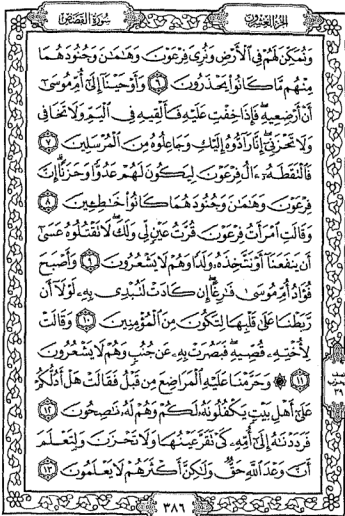 سورة القصص
الجزء العشرون
وَنُمَكِّنَ لَهُمْ فِي الْأَرْضِ وَنُرِيَ فِرْعَوْنَ وَهَٰمَٰنَ وَجُنُودَهُمَا
مِنْهُم مَّا كَانُوا۟ يَحْذَرُونَ ٦ وَأَوْحَيْنَا إِلَىٰ أُمِّ مُوسَىٰ
أَنْ أَرْضِعِيهِ ۖ فَإِذَا خِفْتِ عَلَيْهِ فَأَلْقِيهِ فِي الْيَمِّ وَلَا تَخَافِي
وَلَا تَحْزَنِي ۖ إِنَّا رَآدُّوهُ إِلَيْكِ وَجَاعِلُوهُ مِنَ الْمُرْسَلِينَ ٧
فَالْتَقَطَهُۥٓ ءَالُ فِرْعَوْنَ لِيَكُونَ لَهُمْ عَدُوًّا وَحَزَنًا ۗ إِنَّ
فِرْعَوْنَ وَهَٰمَٰنَ وَجُنُودَهُمَا كَانُوا۟ خَٰطِـِٔينَ ٨
وَقَالَتِ امْرَأَتُ فِرْعَوْنَ قُرَّتُ عَيْنٍ لِّي وَلَكَ ۖ لَا تَقْتُلُوهُ عَسَىٰٓ
أَن يَنفَعَنَآ أَوْ نَتَّخِذَهُۥ وَلَدًا وَهُمْ لَا يَشْعُرُونَ ٩ وَأَصْبَحَ
فُؤَادُ أُمِّ مُوسَىٰ فَٰرِغًا ۖ إِن كَادَتْ لَتُبْدِي بِهِۦ لَوْلَآ أَن
رَّبَطْنَا عَلَىٰ قَلْبِهَا لِتَكُونَ مِنَ الْمُؤْمِنِينَ ١٠ وَقَالَتْ
لِأُخْتِهِۦ قُصِّيهِ ۖ فَبَصُرَتْ بِهِۦ عَن جُنُبٍ وَهُمْ لَا يَشْعُرُونَ
١١ ۞ وَحَرَّمْنَا عَلَيْهِ الْمَرَاضِعَ مِن قَبْلُ فَقَالَتْ هَلْ أَدُلُّكُمْ
عَلَىٰٓ أَهْلِ بَيْتٍ يَكْفُلُونَهُۥ لَكُمْ وَهُمْ لَهُۥ نَٰصِحُونَ ١٢
فَرَدَدْنَٰهُ إِلَىٰٓ أُمِّهِۦ كَيْ تَقَرَّ عَيْنُهَا وَلَا تَحْزَنَ وَلِتَعْلَمَ
أَنَّ وَعْدَ اللَّهِ حَقٌّ وَلَٰكِنَّ أَكْثَرَهُمْ لَا يَعْلَمُونَ ١٣
حزب
٣٩
٣٨٦